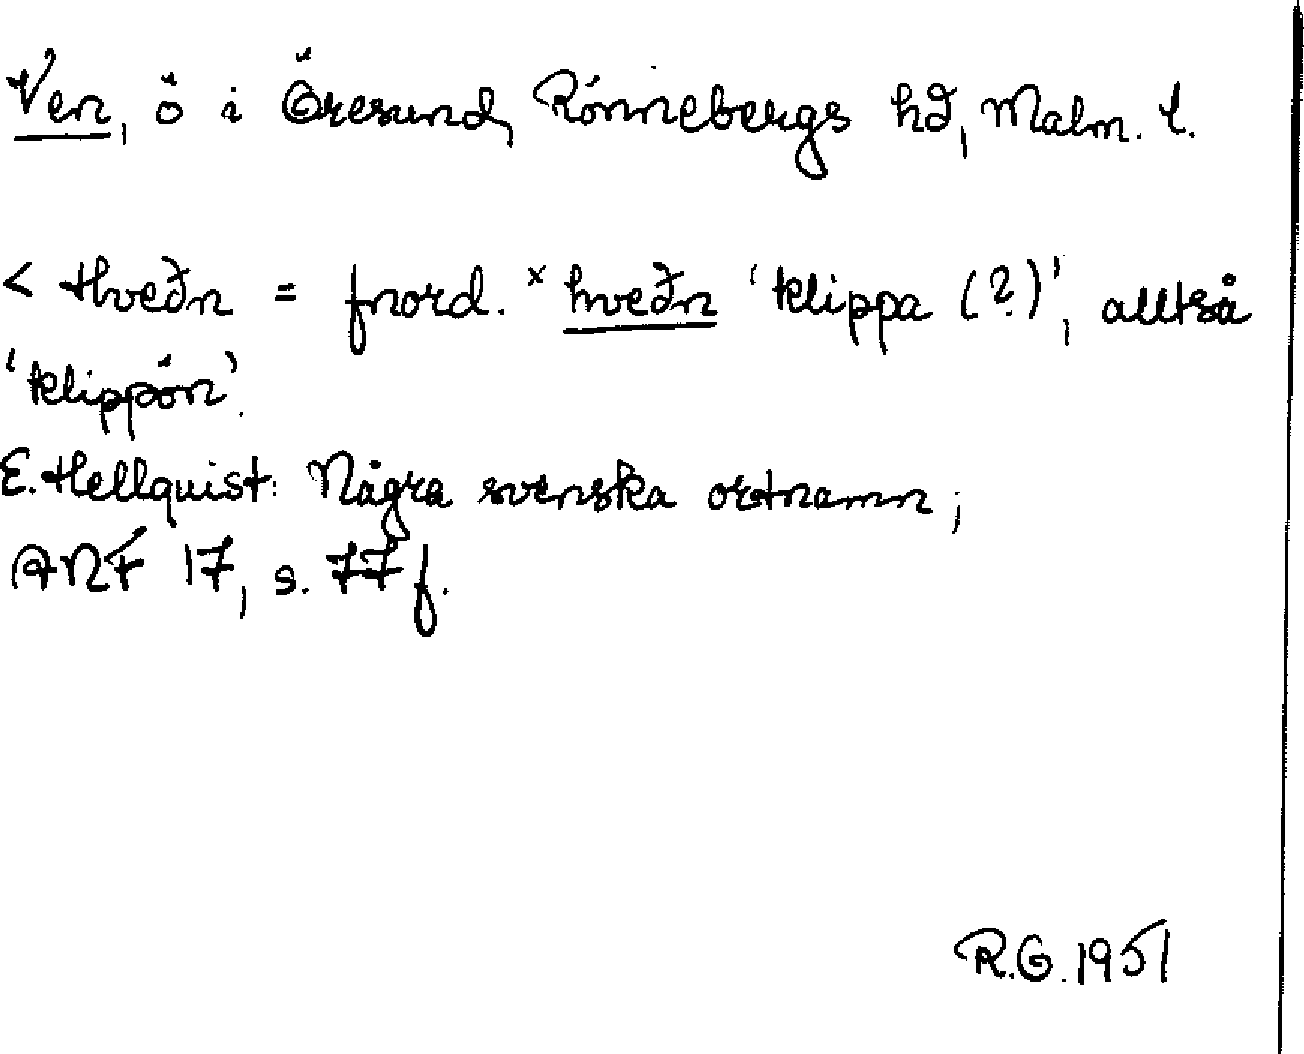 Ven, ö i Öresund, Rönnebergs hd, Malm. l.
< Hveðn = fnord. ˣhveðn 'klippa (?)', alltså
'klippön'.
E. Hellquist: Några svenska ortnamn;
ANF 17, s. 77 f.
R.G. 1951